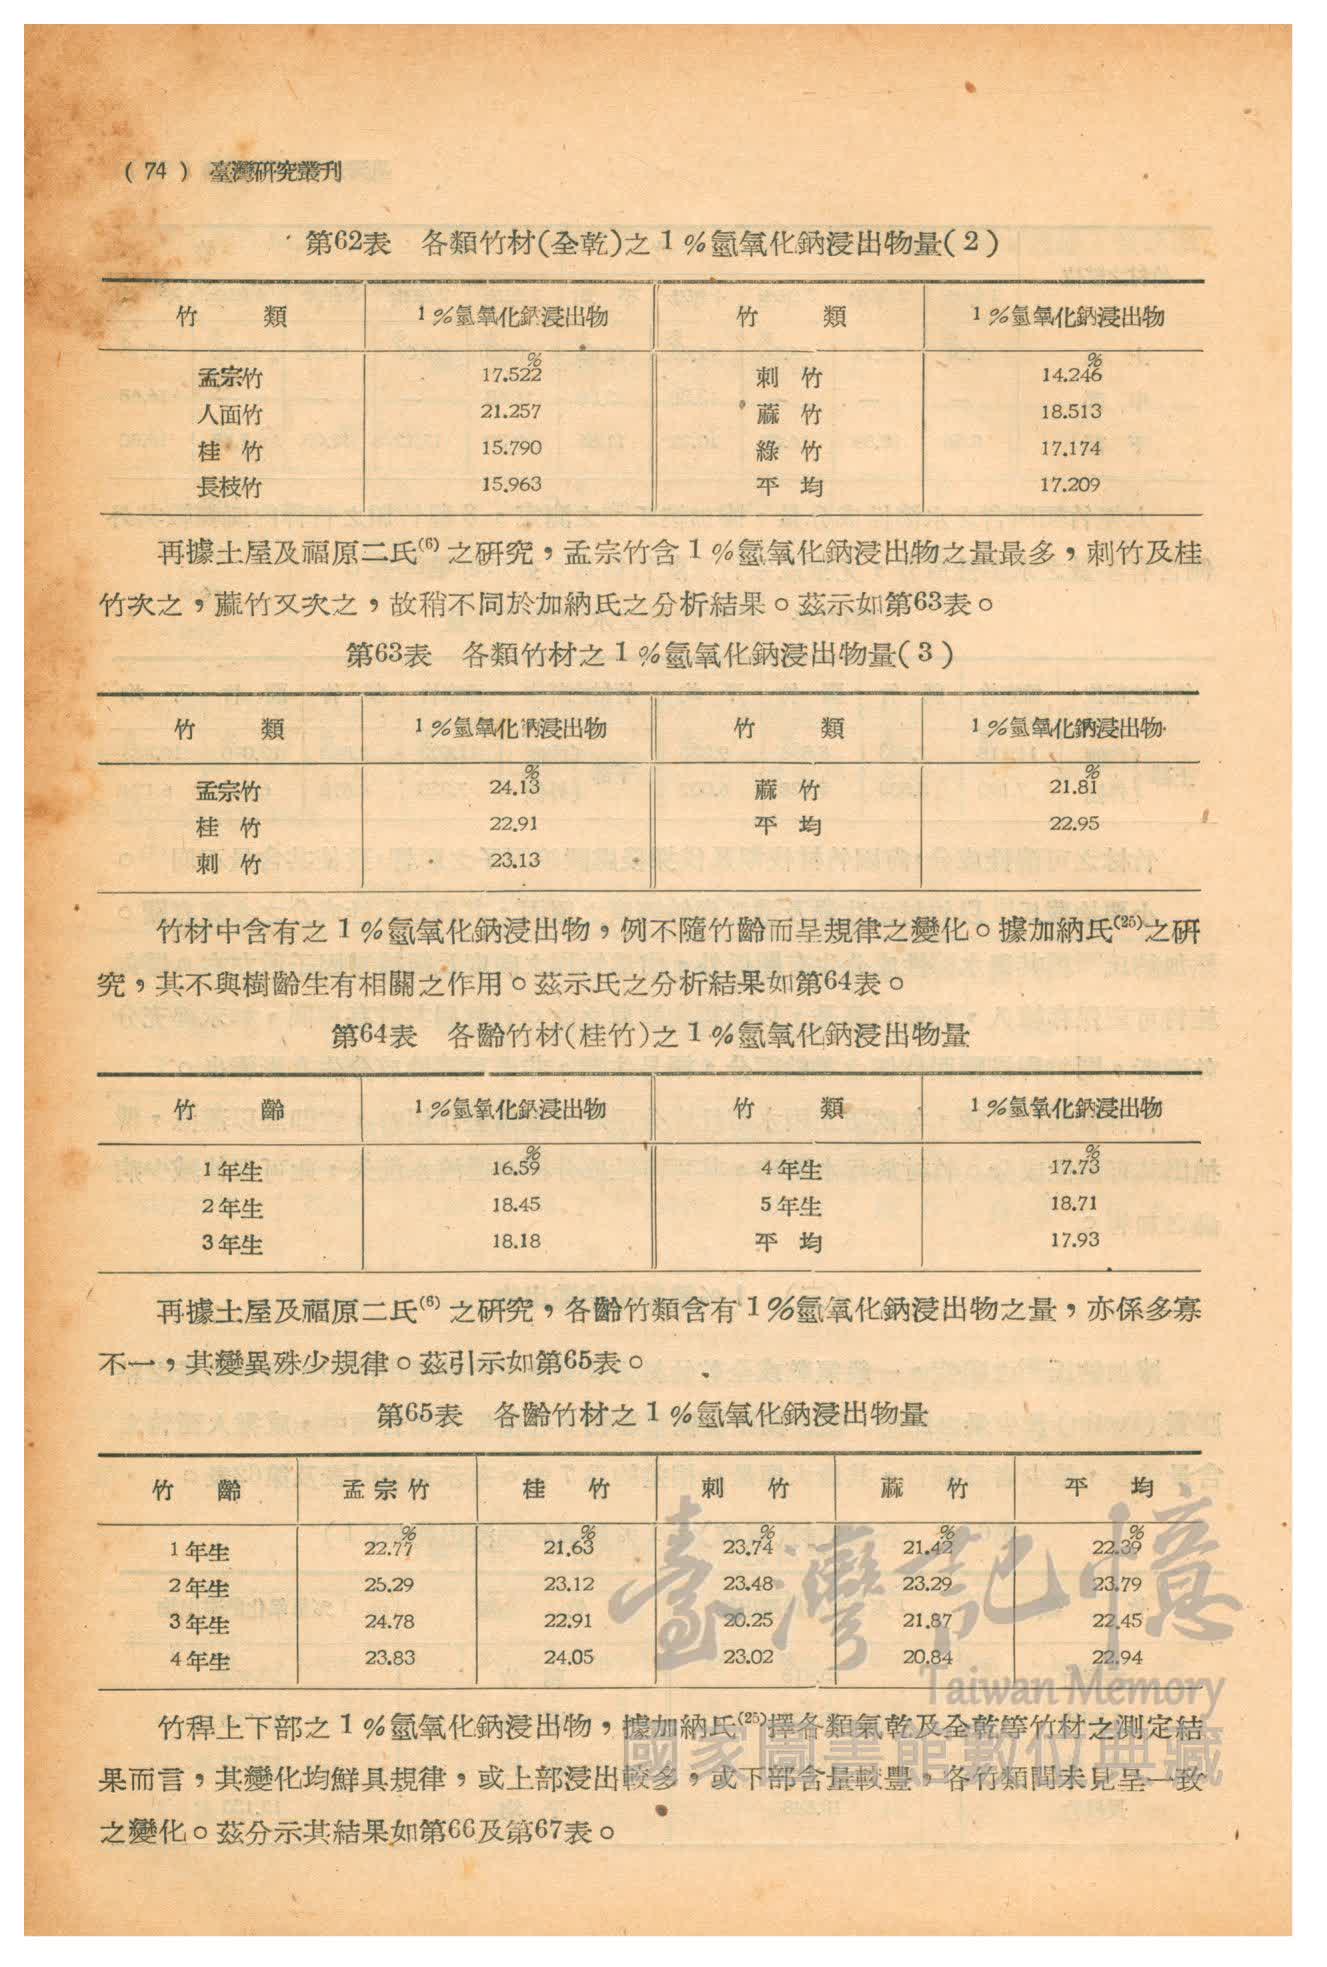 ( 74 ) 臺灣研究叢刊
第62表 各類竹材(全乾)之1%氫氧化鈉浸出物量(2)
竹 類 1%氫氧化鈉浸出物 竹 類 1%氫氧化鈉浸出物
% %
孟宗竹 17.522 刺 竹 14.246
人面竹 21.257 蔴 竹 18.513
桂 竹 15.790 綠 竹 17.174
長枝竹 15.963 平 均 17.209
再據土屋及福原二氏(6)之研究，孟宗竹含1%氫氧化鈉浸出物之量最多，刺竹及桂
竹次之，蔴竹又次之，故稍不同於加納氏之分析結果。茲示如第63表。
第63表 各類竹材之1%氫氧化鈉浸出物量(3)
竹 類 1%氫氧化鈉浸出物 竹 類 1%氫氧化鈉浸出物
% %
孟宗竹 24.13 蔴 竹 21.81
桂 竹 22.91 平 均 22.95
刺 竹 23.13
竹材中含有之1%氫氧化鈉浸出物，例不隨竹齡而呈規律之變化。據加納氏(25)之研
究，其不與樹齡生有相關之作用。茲示氏之分析結果如第64表。
第64表 各齡竹材(桂竹)之1%氫氧化鈉浸出物量
竹 齡 1%氫氧化鈉浸出物 竹 類 1%氫氧化鈉浸出物
% %
1年生 16.59 4年生 17.73
2年生 18.45 5年生 18.71
3年生 18.18 平 均 17.93
再據土屋及福原二氏(6)之研究，各齡竹類含有1%氫氧化鈉浸出物之量，亦係多寡
不一，其變異殊少規律。茲引示如第65表。
第65表 各齡竹材之1%氫氧化鈉浸出物量
竹 齡 孟宗竹 桂 竹 刺 竹 蔴 竹 平 均
% % % % %
1年生 22.77 21.63 23.74 21.42 22.39
2年生 25.29 23.12 23.48 23.29 23.79
3年生 24.78 22.91 20.25 21.87 22.45
4年生 23.83 24.05 23.02 20.84 22.94
竹稈上下部之1%氫氧化鈉浸出物，據加納氏(25)擇各類氣乾及全乾等竹材之測定結
果而言，其變化均鮮具規律，或上部浸出較多，或下部含量較豐，各竹類間未見呈一致
之變化。茲分示其結果如第66及第67表。
臺灣記憶
Taiwan Memory
國家圖書館數位典藏